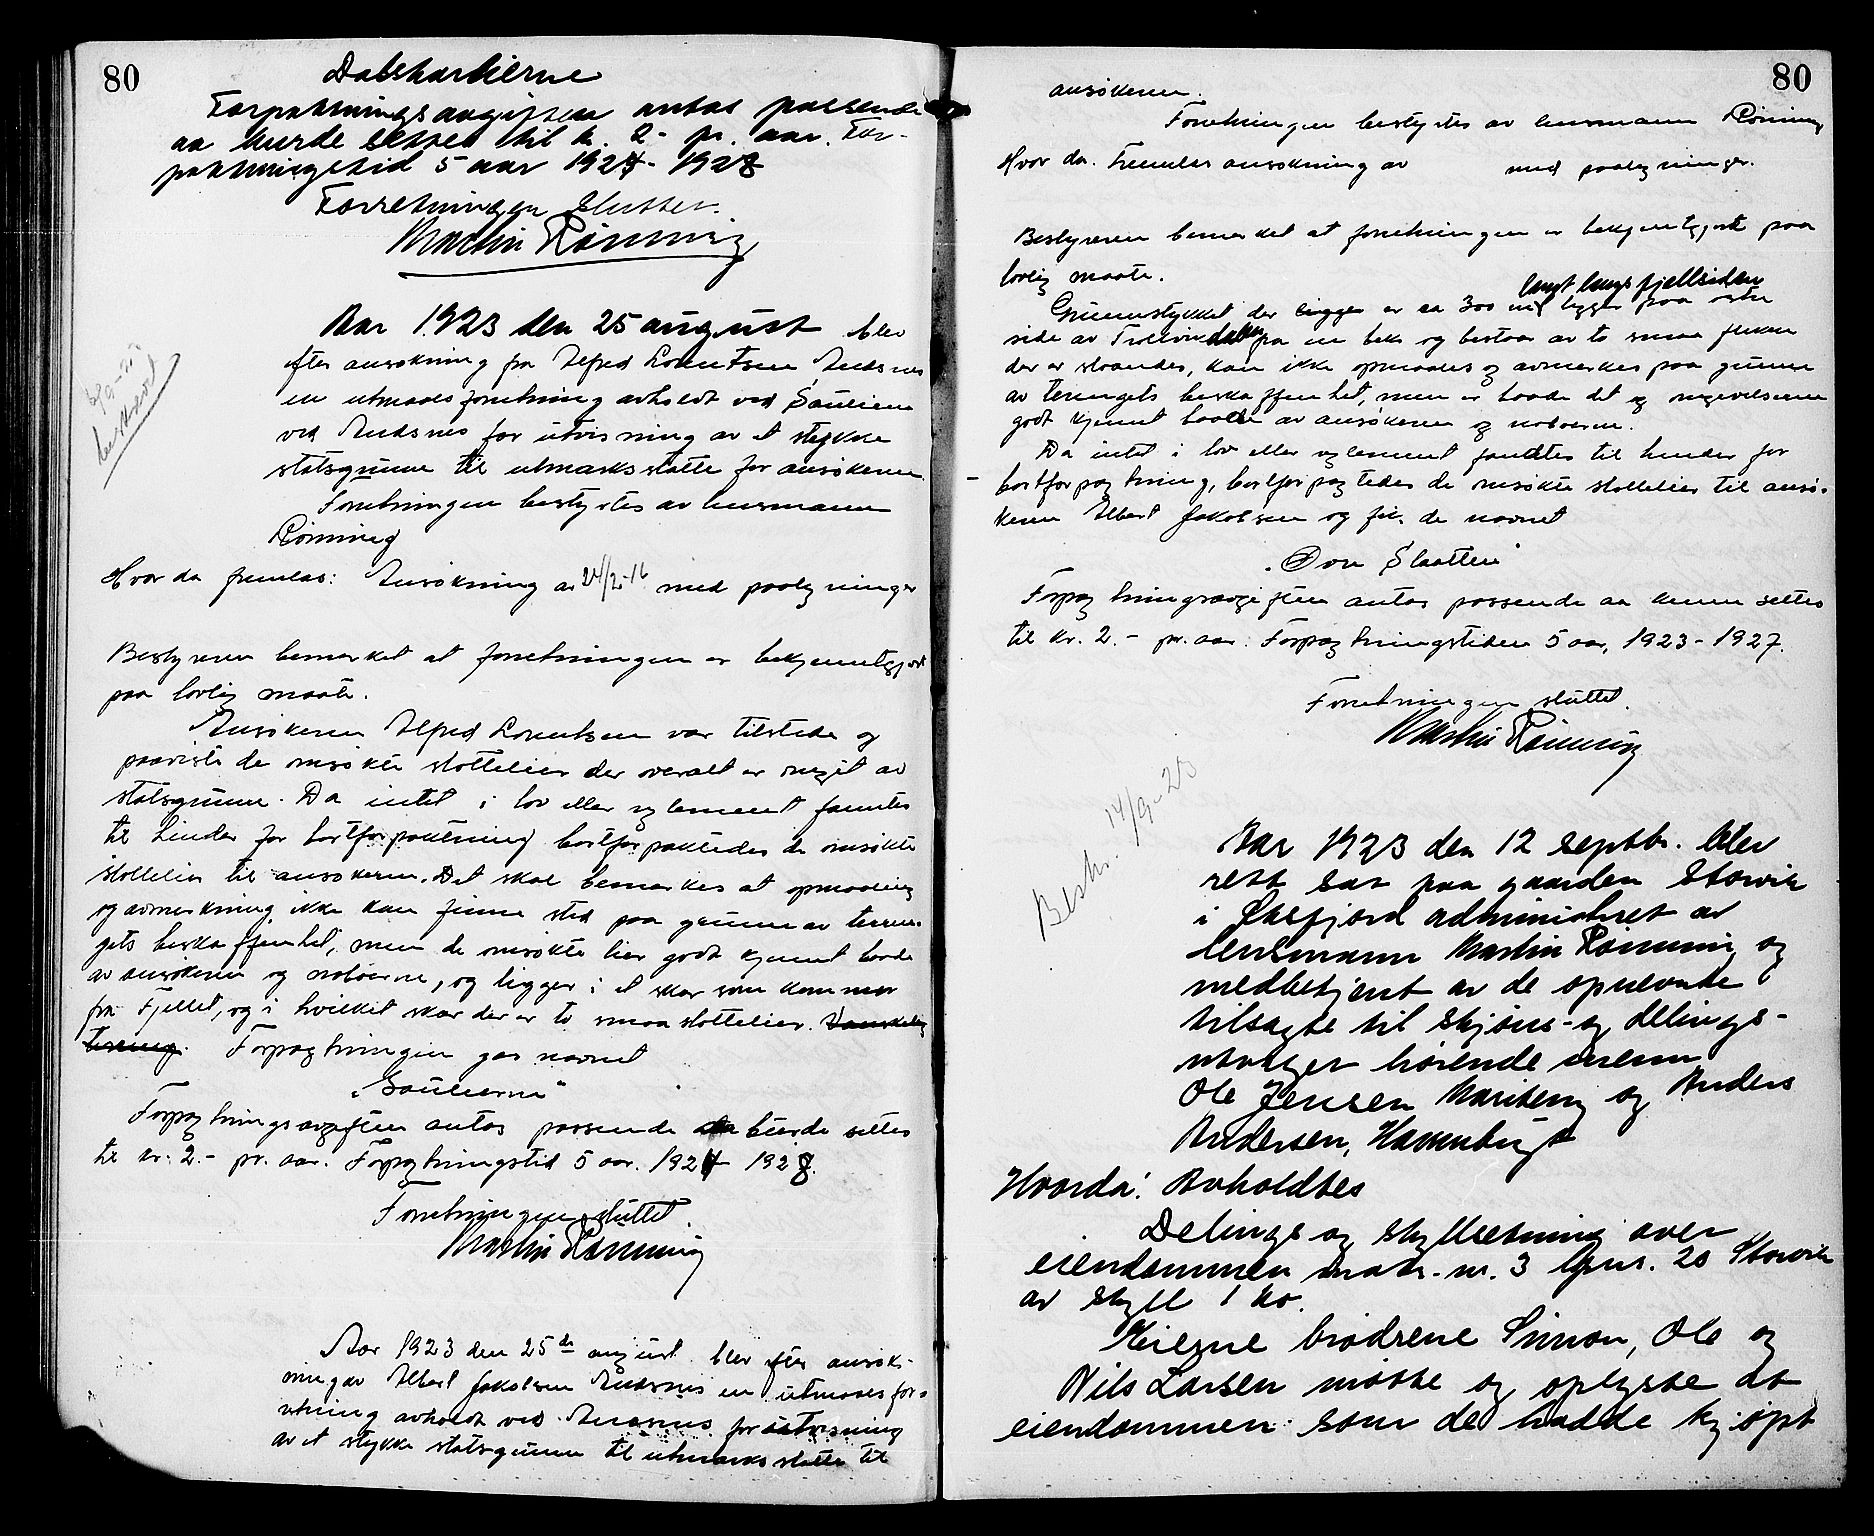 80
Dalsharkierne
Forpaktningsavgiften antas passende
aa burde settes til kr. 2- pr. aar. For-
paktningstid 5 aar 1924- 1928
Forretningen sluttet.
Martin Rønning
Aar 1923 den 25 august blev
efter ansøkning fra Alfred Lorentsen, Andsnes
en utmaalsforretning avholdt ved Sauliene
ved Andsnes for utvisning av et stykke
statsgrunn til utmarksslatte for ansøkeren.
Forretningen bestyrtes av lensmann
Rønning
Hvor da fremlas: Ansøkning av 24/2-16 med paategninger
Bestyreren bemerket at forretningen er bekjentgjort
paa lovlig maate.
Ansøkeren Alfred Lorentsen var tilstede og
paaviste de ansøkte slottelier der overalt er omgit av
statsgrunn. Da intet i lov eller reglement fanntes
til hinder for bortforpaktning bortforpaktedes de ansøkte
slottelier til ansøkeren. Det skal bemerkes at opmaaling
og avmerkning ikke kan finne sted paa grunn av terren-
gets beskaffenhet, men de ansøkte lier godt kjennt baade
av ansøkeren og naboerne, og ligger i et skar som kommer
fra Fjellet, og i hvilket skar der er to smaa slottelier.
Forpagtningen gas navnet
"Saulierne"
Forpagtningsavgiften antas passende burde settes
til kr. 2.- pr. aar. Forpagtningstid 5 aar. 1924- 1928.
Forretningen sluttet.
Martin Rønning
Aar 1923 den 25de august blev efter ansøk-
ning av Albert Jakobsen Andsnes en utmaalsfor-
retning avholdt ved Andsnes for utvisning
av et stykke statsgrunn til utmarksslatte til
80
ansøkeren.
Forretningen bestyrtes av lensmann Rønning
Hvor da. Fremlas ansøkning av med paategninger.
Bestyreren bemerket at forretningen er bekjentgjort paa
lovlig maate.
langt langs fjellsiden
Grunnstykket der ligger er ca 300 m ligger paa østre
side av Trollvikdalen fra en bek og bestaar av to smaa flekker
der er slaandes, kan ikke opmaales og avmerkes paa grunn
av terengets beskaffenhet, men er baade det og omgivelserne
godt kjennt baade av ansøkeren og naboerne.
Da intet i lov eller reglement fandtes til hinder for
bortforpagtning, bortforpagtedes de ansøkte slottelier til ansø-
keren Albert Jakobsen og fik de navnet
"Øvre Slaatten"
Forpagtningsavgiften antas passende aa kunne settes
til kr. 2.- pr. aar. Forpagtningstiden 5 aar, 1923 - 1927.
Forretningen sluttet.
Martin Rønning
Beskr. 14/9-23
Aar 1923 den 12 septbr. blev
rett sat paa gaarden Storvik
i Øksfjord administreret av
lensmann Martin Rønning og
medbetjent av de opnevnte
tilsagte til skjøns- og delings-
utvalget hørende menn
Ole Jensen Marikeng og Anders
Andersen, Hamnbugt
Hvorda: Avholdtes
Delings og skyllsetning over
eiendommen matr. nr. 3 Gnr. 20 Storvik
av skyll 1 ko.
Eierne brødrene Simon, Ole og
Nils Larsen møtte og oplyste at
eiendommen som de hadde kjøpt